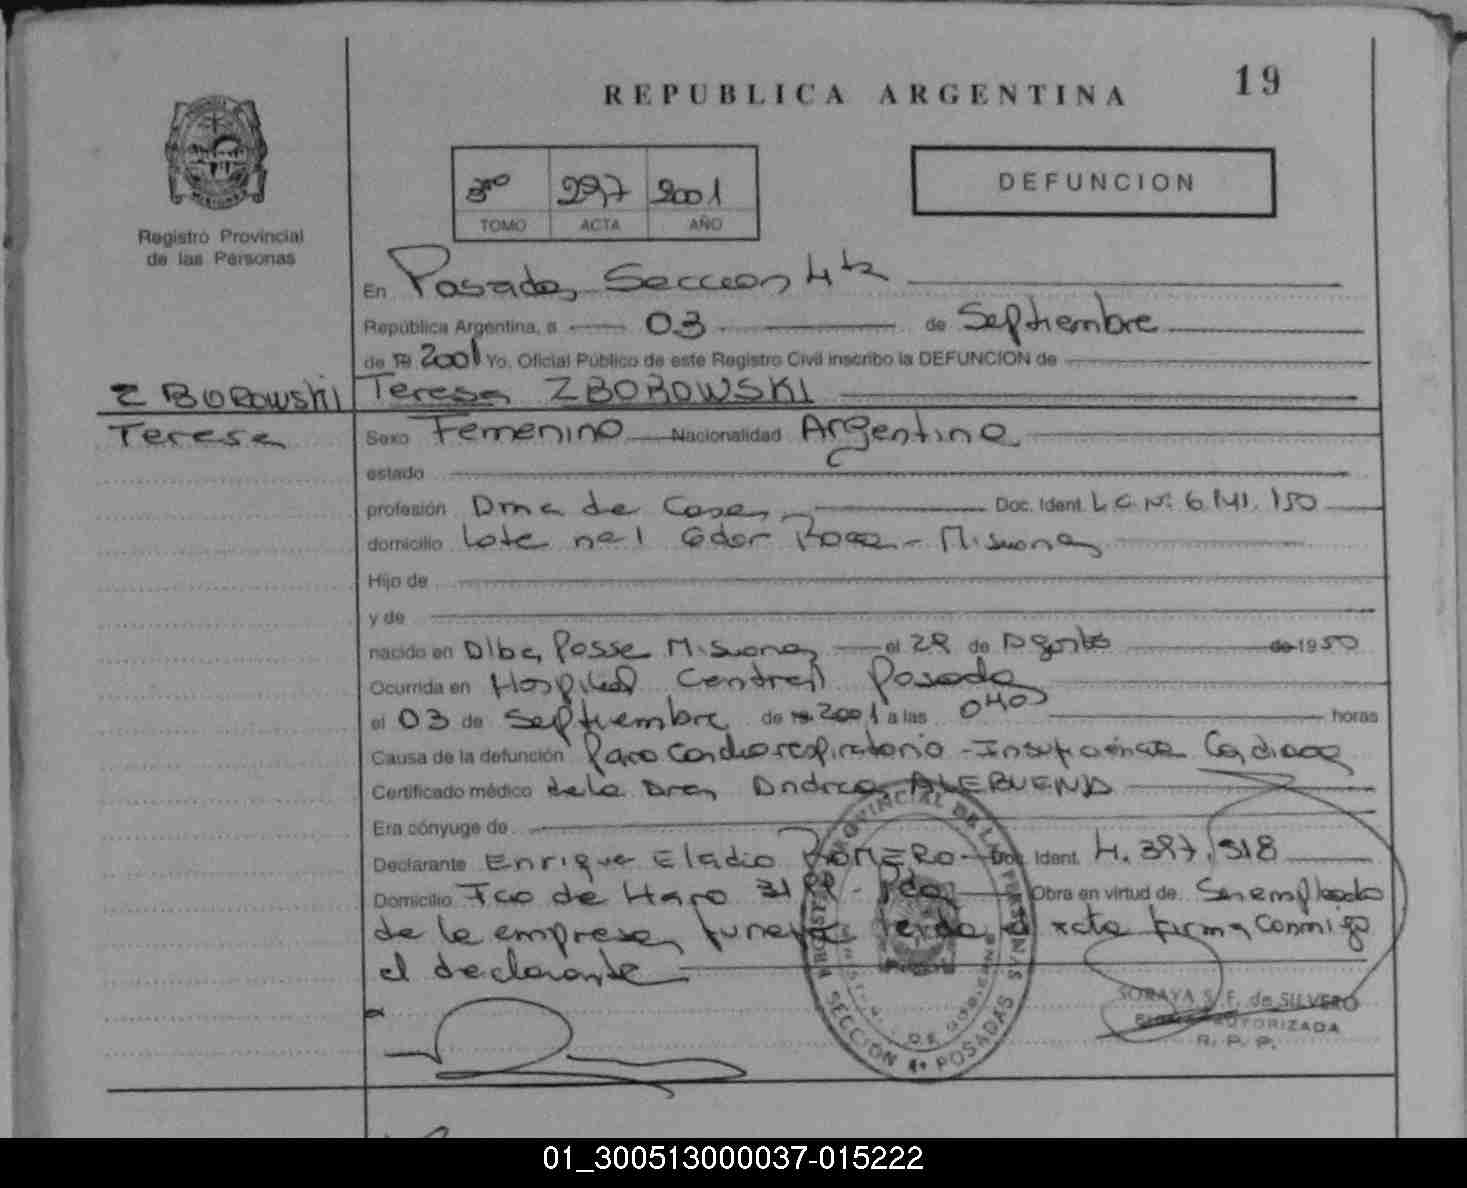 REPUBLICA ARGENTINA
19
3ro 297 2001
TOMO ACTA AÑO
DEFUNCION
Registro Provincial
de las Personas
En Posadas, Seccion 4ta
República Argentina, a 03 de Septiembre
de 2001 Yo, Oficial Público de este Registro Civil inscribo la DEFUNCION de
ZBOROWSKI
Teresa
Teresa ZBOROWSKI
Sexo Femenino Nacionalidad Argentina
estado
profesión Ama de Casa, Doc. Ident. L.C. Nº 6.141.150
domicilio Lote nº 1 Gdor Roca - Misiones
Hijo de
y de
nacido en Alba Posse Misiones el 28 de Agosto de 1950
Ocurrida en Hospital Central Posadas
el 03 de Septiembre de 2001 a las 0405 horas
Causa de la defunción Paro Cardiorespiratorio - Insuficiencia Cardiaca
Certificado médico de la Dra, Andrea ALEBUENA
Era cónyuge de
Declarante Enrique Eladio ROMERO - Doc. Ident. 4.397.518
Domicilio Fco de Haro - Pdas Obra en virtud de Ser empleado
de la empresa, funeraria acta firma conmigo
el declarante
PROVINCIAL DE LAS PERSONAS
SECCIÓN 4ª POSADAS
DE GOBIERNO
SORAYA S. F. de SILVERO
FIRMA AUTORIZADA
R. P. P.
01_300513000037-015222